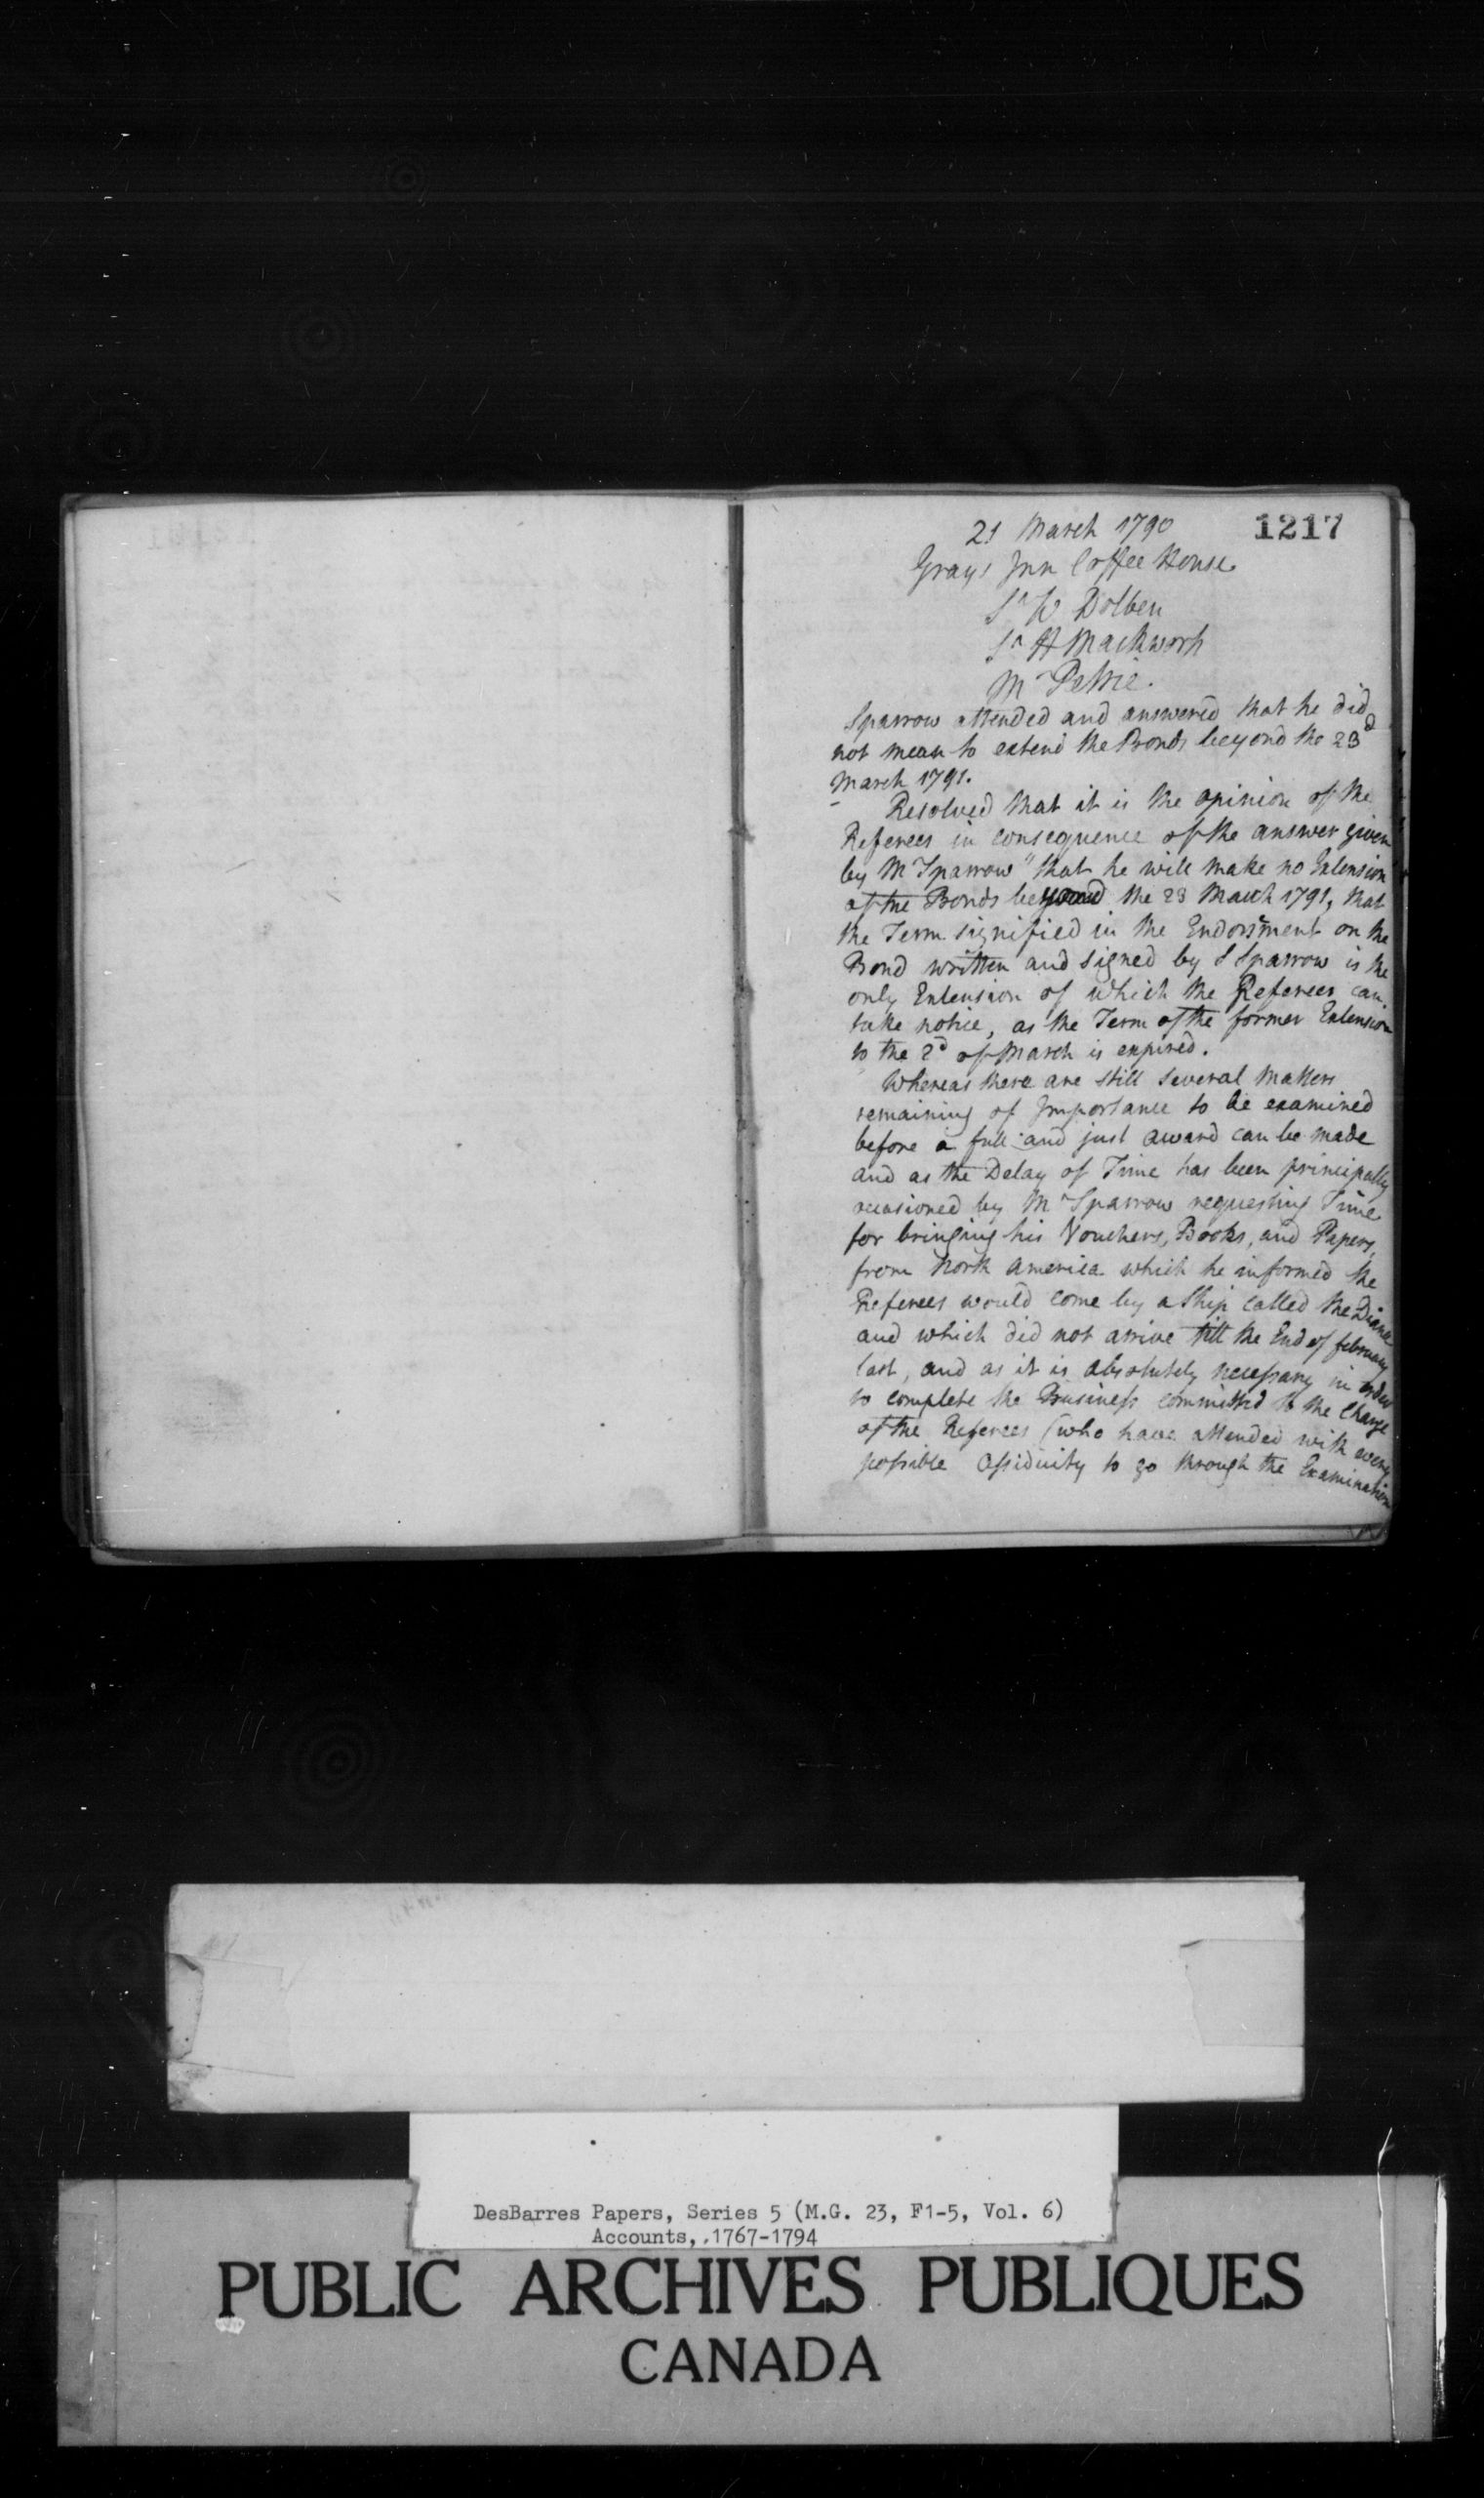 1217
21 March 1790
Grays Inn Coffee House
Sr W Dolben
Sr H Mackworth
Mr Petrie.
Sparrow attended and answered that he did
not mean to extend the Bonds beyond the 23d
March 1791.
Resolved that it is the opinion of the
Referees in consequence of the answer given
by Mr Sparrow "that he will make no Extension
of the Bonds beyond the 23 March 1791, that
the Term signified in the Endorsment on the
Bond written and signed by S Sparrow is the
only Extension of which the Referees can
take notice, as the Term of the former Extension
to the 2d of March is expired.
Whereas there are still several Matters
remaining of Importance to be examined
before a full and just award can be made
and as the Delay of Time has been principally
occasioned by Mr Sparrow requesting Time
for bringing his Vouchers, Books, and Papers,
from North America which he informed the
Referees would come by a Ship called the Diana
and which did not arrive till the End of february
last, and as it is absolutely necessary in order
to complete the Business committed to the Charge
of the Referees (who have attended with every
possible Assiduity to go through the Examination
DesBarres Papers, Series 5 (M.G. 23, F1-5, Vol. 6)
Accounts, 1767-1794
PUBLIC ARCHIVES PUBLIQUES
CANADA